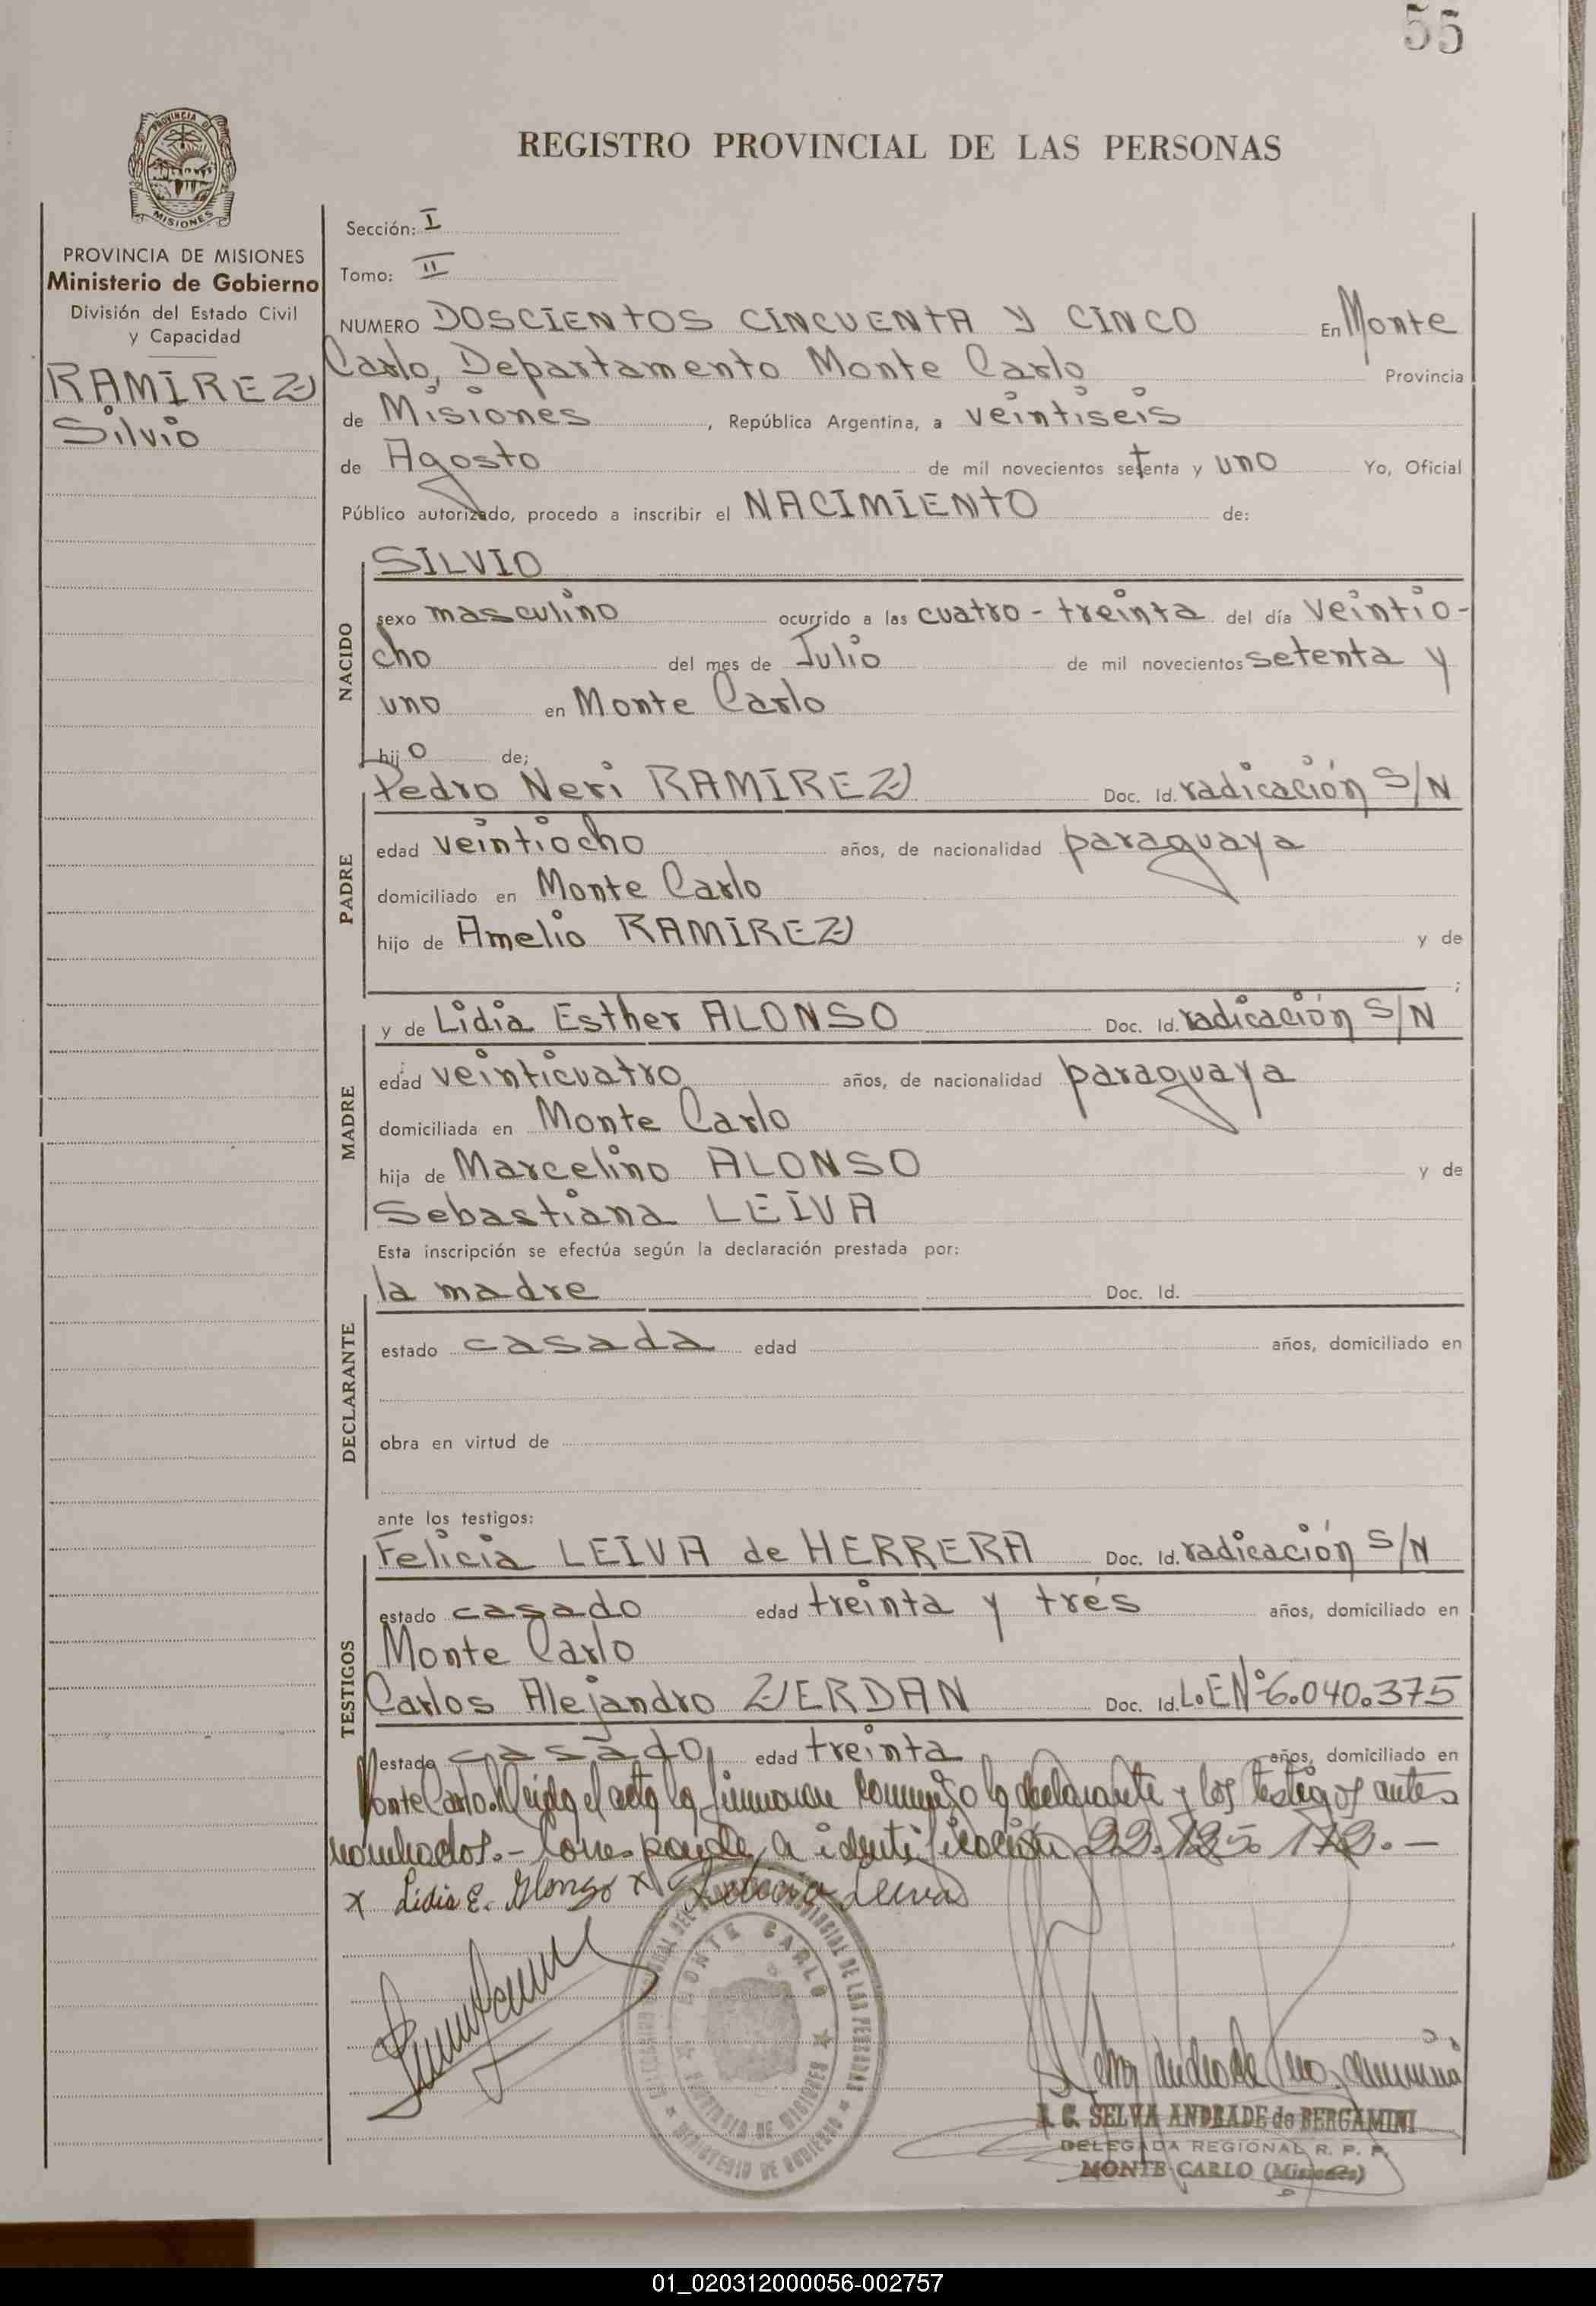 55
PROVINCIA DE
MISIONES
REGISTRO PROVINCIAL DE LAS PERSONAS
PROVINCIA DE MISIONES
Ministerio de Gobierno
División del Estado Civil
y Capacidad
RAMIREZ
Silvio
Sección: I
Tomo: II
NUMERO DOSCIENTOS CINCUENTA Y CINCO En Monte
Carlo, Departamento Monte Carlo Provincia
de Misiones, República Argentina, a veintiseis
de Agosto de mil novecientos setenta y uno Yo, Oficial
Público autorizado, procedo a inscribir el NACIMIENTO de:
NACIDO
SILVIO
sexo masculino ocurrido a las cuatro - treinta del día veintio-
cho del mes de Julio de mil novecientos setenta y
uno en Monte Carlo
hijo de;
PADRE
Pedro Neri RAMIREZ Doc. Id. radicación S/N
edad veintiocho años, de nacionalidad paraguaya
domiciliado en Monte Carlo
hijo de Amelio RAMIREZ y de
;
MADRE
y de Lidia Esther ALONSO Doc. Id. radicación S/N
edad veinticuatro años, de nacionalidad paraguaya
domiciliada en Monte Carlo
hija de Marcelino ALONSO y de
Sebastiana LEIVA
Esta inscripción se efectúa según la declaración prestada por:
DECLARANTE
la madre Doc. Id.
estado casada edad años, domiciliado en
obra en virtud de
ante los testigos:
TESTIGOS
Felicia LEIVA de HERRERA Doc. Id. radicación S/N
estado casado edad treinta y trés años, domiciliado en
Monte Carlo
Carlos Alejandro ZERDAN Doc. Id. L.E.Nº 6.040.375
estado casado, edad treinta años, domiciliado en
Monte Carlo. Leída el acta la firmaron conmigo la declarante y los testigos antes
nombrados.- Corresponde a identificación 22.125.172.-
x Lidia E. Alonzo x Felicia Leiva
MONTE CARLO
PROVINCIA DE MISIONES
MINISTERIO DE GOBIERNO
SELVA ANDRADE de BERGAMINI
DELEGADA REGIONAL R. P. P.
MONTE CARLO (Misiones)
01_020312000056-002757